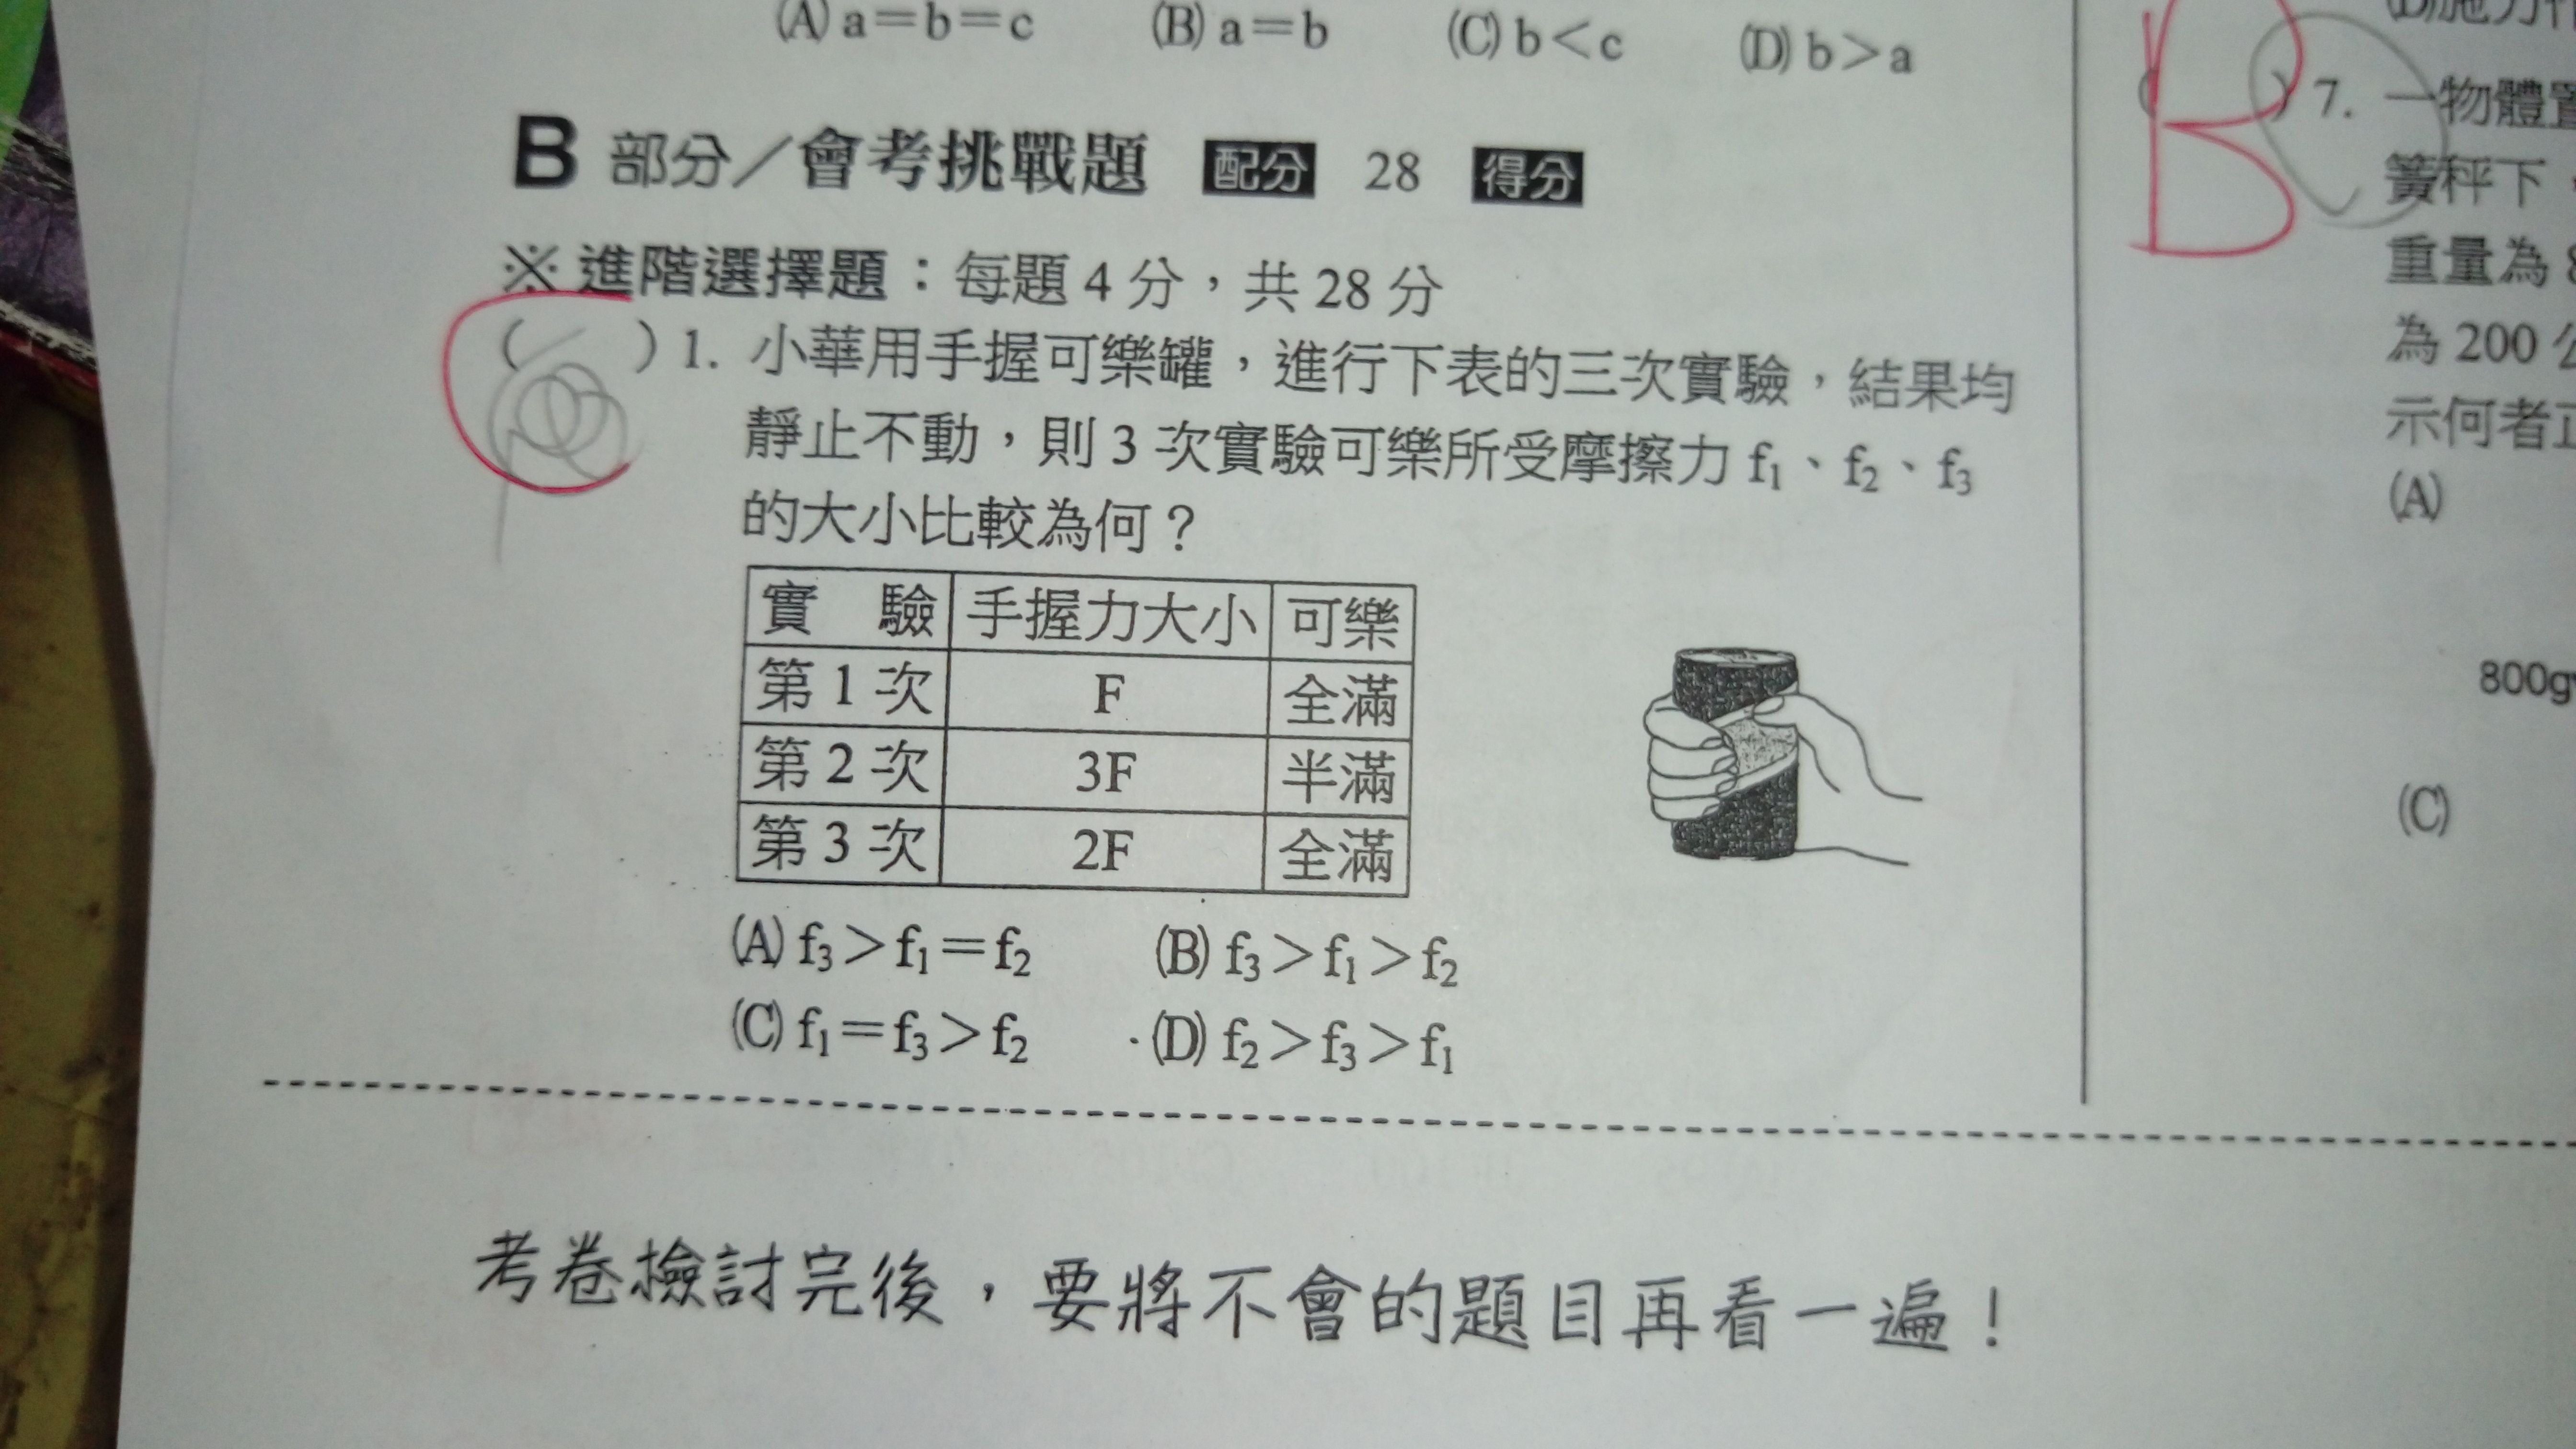 (A) a＝b＝c (B) a＝b (C) b＜c (D) b＞a
B 部分／會考挑戰題 配分 28 得分
※ 進階選擇題：每題 4 分，共 28 分
( ) 1. 小華用手握可樂罐，進行下表的三次實驗，結果均
靜止不動，則 3 次實驗可樂所受摩擦力 f1、f2、f3
的大小比較為何？
實 驗 手握力大小 可樂
第 1 次 F 全滿
第 2 次 3F 半滿
第 3 次 2F 全滿
(A) f3＞f1＝f2 (B) f3＞f1＞f2
(C) f1＝f3＞f2 (D) f2＞f3＞f1
考卷檢討完後，要將不會的題目再看一遍！
B
( ) 7. 一物體置
簧秤下，
重量為 8
為 200 公
示何者正
(A)
800g
(C)